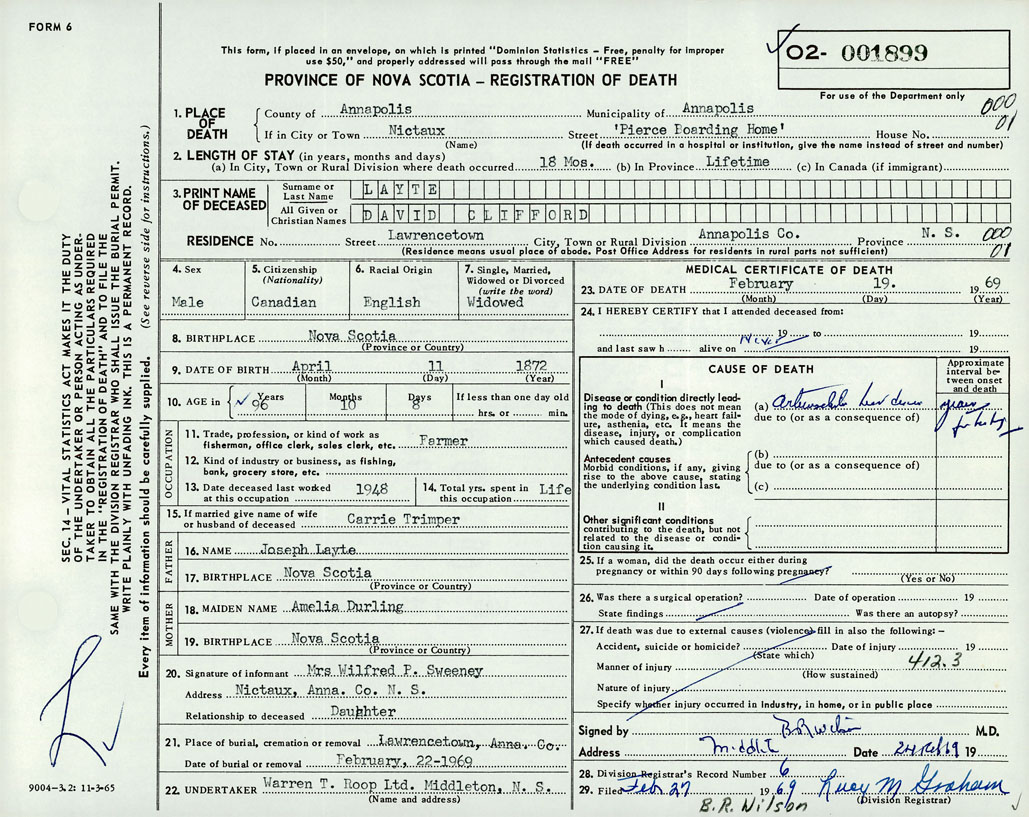 FORM 6
This form, if placed in an envelope, on which is printed "Dominion Statistics – Free, penalty for improper
use $50," and properly addressed will pass through the mail "FREE"
O2- 001899
PROVINCE OF NOVA SCOTIA – REGISTRATION OF DEATH
For use of the Department only
000
01
1. PLACE OF DEATH
County of Annapolis Municipality of Annapolis
If in City or Town Nictaux Street 'Pierce Boarding Home' House No.
(Name) (If death occurred in a hospital or institution, give the name instead of street and number)
2. LENGTH OF STAY (in years, months and days)
(a) In City, Town or Rural Division where death occurred 18 Mos. (b) In Province Lifetime (c) In Canada (if immigrant)
3. PRINT NAME OF DECEASED
Surname or Last Name LAYTE
All Given or Christian Names DAVID CLIFFORD
RESIDENCE No. Street Lawrencetown City, Town or Rural Division Annapolis Co. Province N. S. 000
(Residence means usual place of abode. Post Office Address for residents in rural parts not sufficient) 01
4. Sex
Male
5. Citizenship
(Nationality)
Canadian
6. Racial Origin
English
7. Single, Married, Widowed or Divorced
(write the word)
Widowed
8. BIRTHPLACE Nova Scotia
(Province or Country)
9. DATE OF BIRTH April 11 1872
(Month) (Day) (Year)
10. AGE in Years 96 Months 10 Days 8 If less than one day old
hrs. or min.
OCCUPATION
11. Trade, profession, or kind of work as
fisherman, office clerk, sales clerk, etc. Farmer
12. Kind of industry or business, as fishing,
bank, grocery store, etc.
13. Date deceased last worked
at this occupation 1948
14. Total yrs. spent in
this occupation Life
15. If married give name of wife
or husband of deceased Carrie Trimper
FATHER
16. NAME Joseph Layte
17. BIRTHPLACE Nova Scotia
(Province or Country)
MOTHER
18. MAIDEN NAME Amelia Durling
19. BIRTHPLACE Nova Scotia
(Province or Country)
20. Signature of informant Mrs Wilfred P. Sweeney
Address Nictaux, Anna. Co. N. S.
Relationship to deceased Daughter
21. Place of burial, cremation or removal Lawrencetown, Anna. Co.
Date of burial or removal February, 22-1969
22. UNDERTAKER Warren T. Roop Ltd. Middleton, N. S.
(Name and address)
MEDICAL CERTIFICATE OF DEATH
23. DATE OF DEATH February 19. 1969
(Month) (Day) (Year)
24. I HEREBY CERTIFY that I attended deceased from:
19 to 19
and last saw h alive on Never 19
CAUSE OF DEATH
Approximate interval between onset and death
I
Disease or condition directly lead-
ing to death (This does not
mean the mode of dying, e.g., heart fail-
ure, asthenia, etc. It means the
disease, injury, or complication
which caused death.)
(a)
due to (or as a consequence of)
years
Antecedent causes
Morbid conditions, if any, giving
rise to the above cause, stating
the underlying condition last.
(b)
due to (or as a consequence of)
(c)
II
Other significant conditions
contributing to the death, but not
related to the disease or condi-
tion causing it.
25. If a woman, did the death occur either during
pregnancy or within 90 days following pregnancy?
(Yes or No)
26. Was there a surgical operation? Date of operation 19
State findings Was there an autopsy?
27. If death was due to external causes (violence) fill in also the following: –
Accident, suicide or homicide? Date of injury 19
(State which) 412.3
Manner of injury
(How sustained)
Nature of injury
Specify whether injury occurred in industry, in home, or in public place
Signed by B R Wilson M.D.
Address Middleton Date 24 Feb 69 19
28. Division Registrar's Record Number 6
29. Filed Feb. 27 1969 Lucy M Graham
(Division Registrar)
B.R. Wilson
SEC. 14 – VITAL STATISTICS ACT MAKES IT THE DUTY
OF THE UNDERTAKER OR PERSON ACTING AS UNDER-
TAKER TO OBTAIN ALL THE PARTICULARS REQUIRED
IN THE "REGISTRATION OF DEATH" AND TO FILE THE
SAME WITH THE DIVISION REGISTRAR WHO SHALL ISSUE THE BURIAL PERMIT.
WRITE PLAINLY WITH UNFADING INK. THIS IS A PERMANENT RECORD.
Every item of information should be carefully supplied. (See reverse side for instructions.)
9004-3.2: 11-3-65